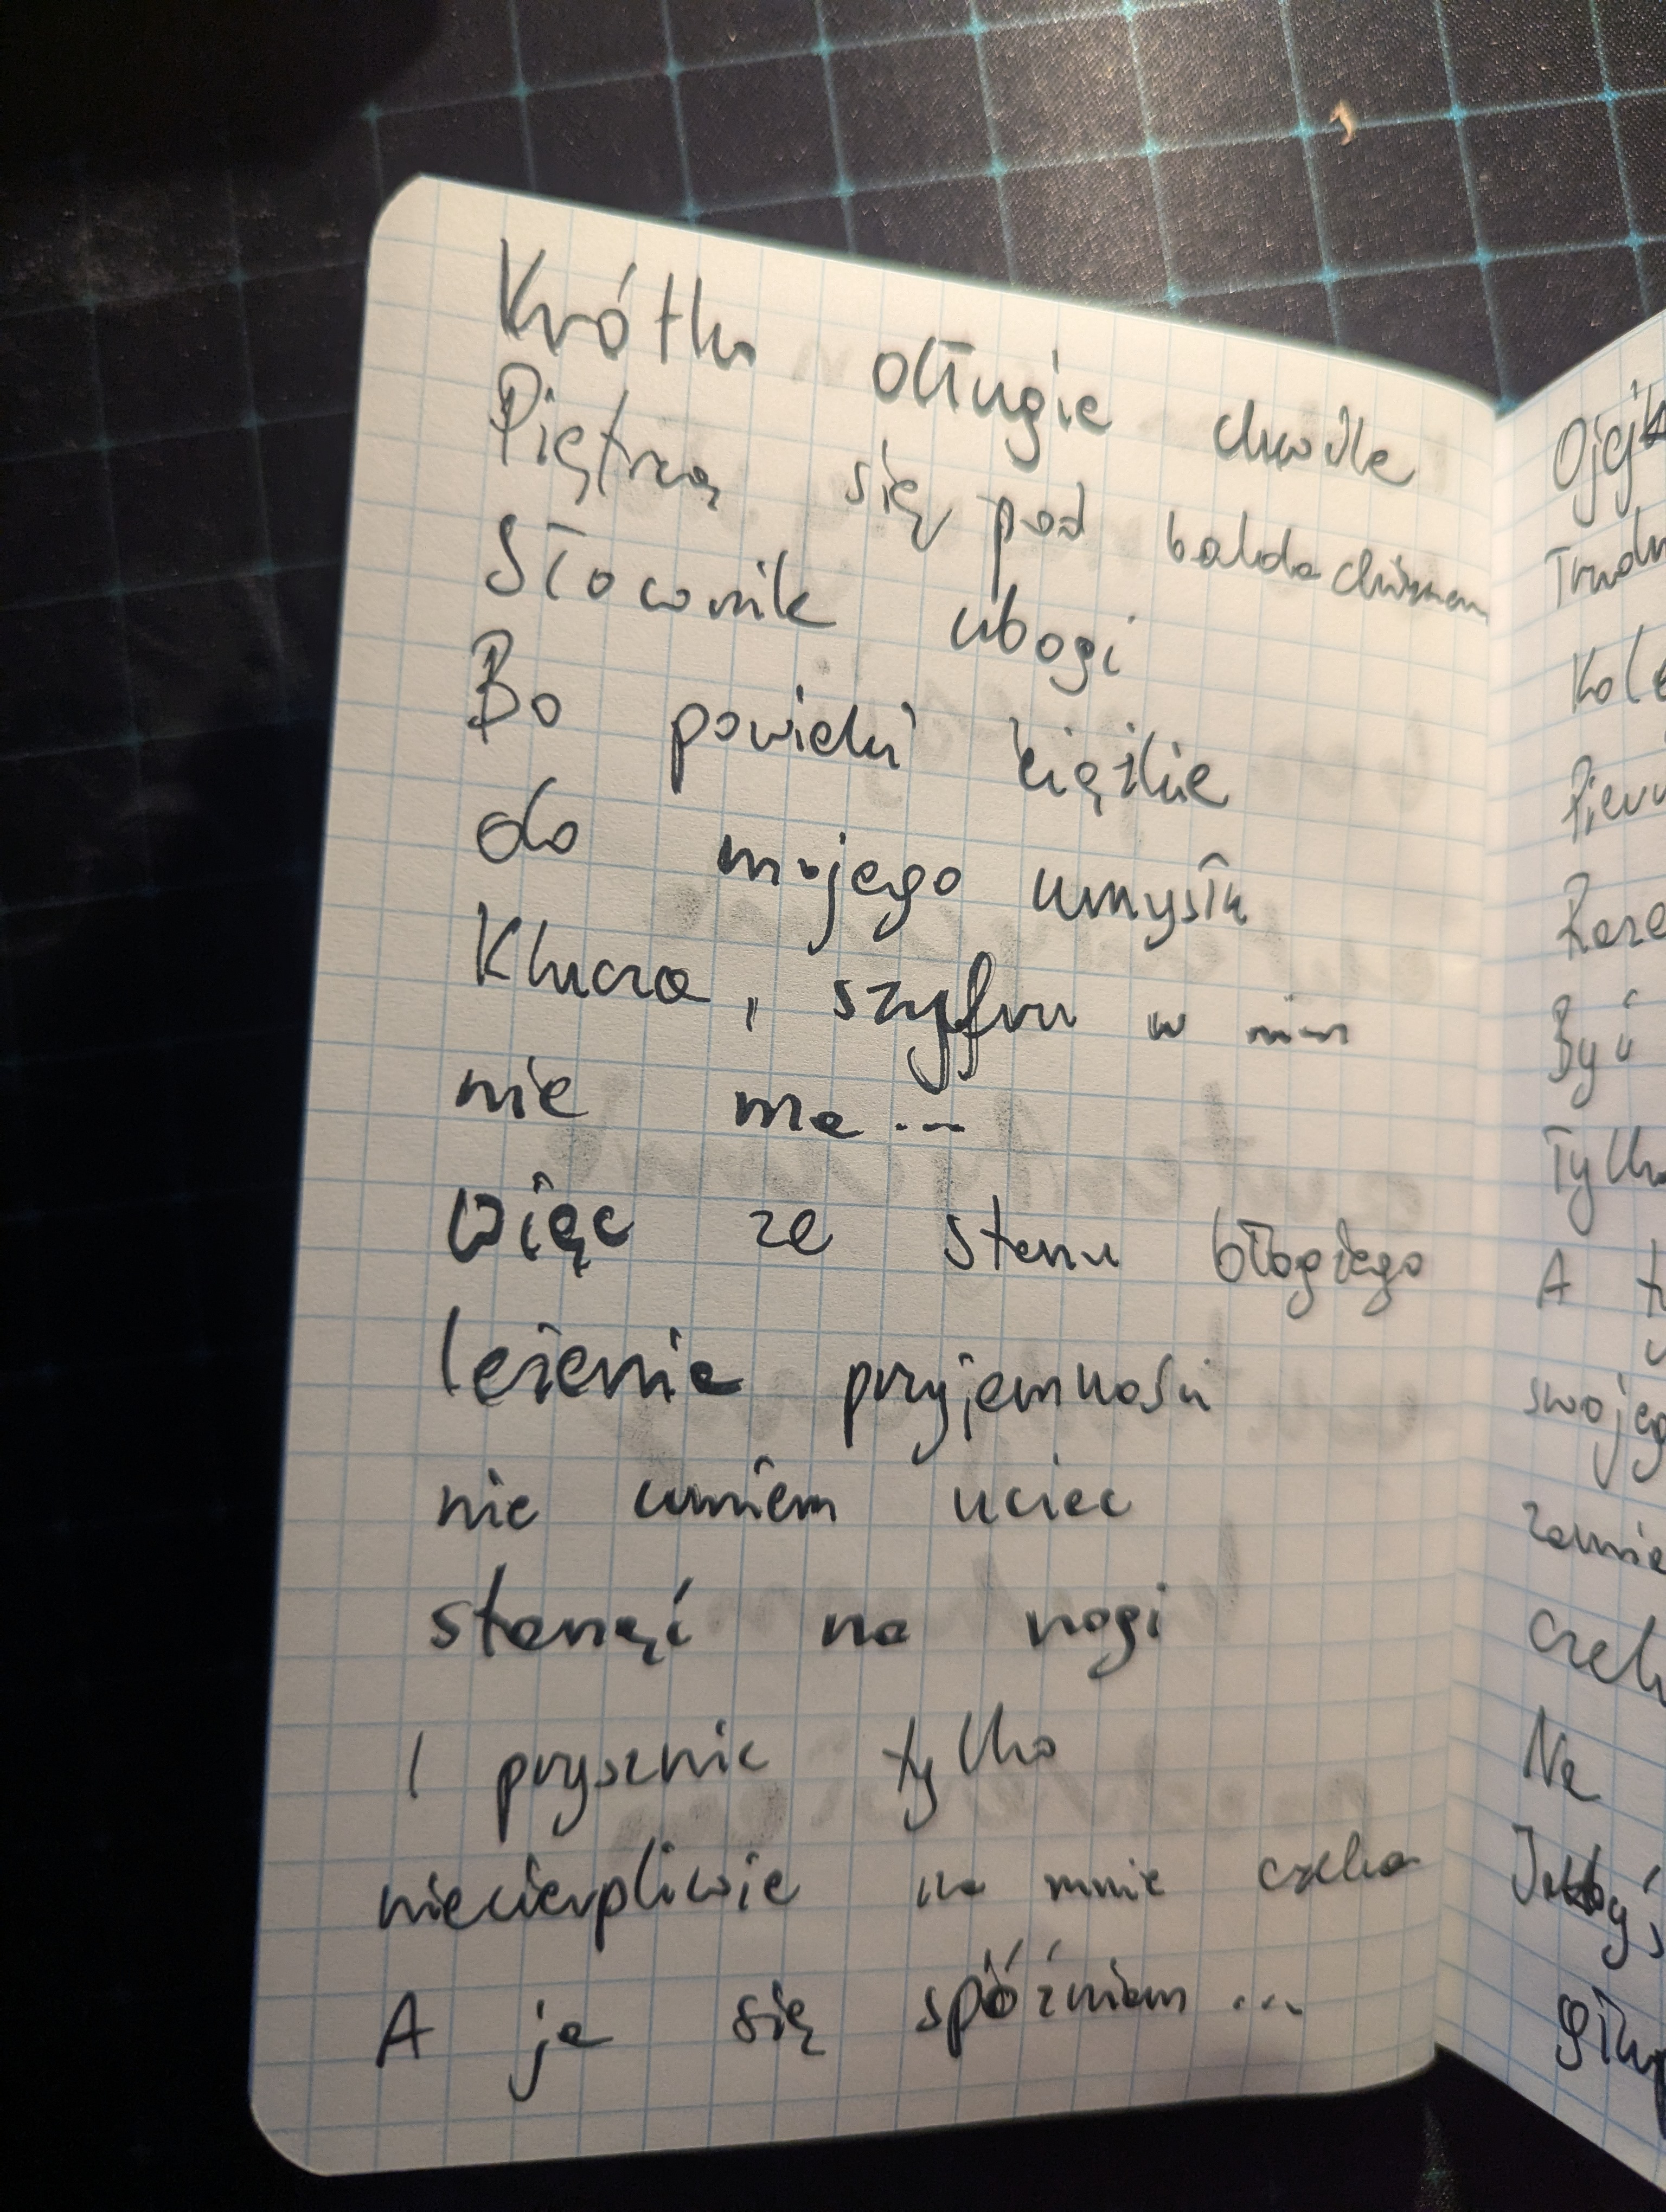 Krótko długie chwile
Piętrzą się pod baldachimem
Słownik ubogi
Bo powieki ciężkie
do mojego umysłu
Klucza, szyfru w nim
nie ma...
Więc ze stanu błogiego
leżenia przyjemności
nie umiem uciec
stanąć na nogi
I prysznic tylko
niecierpliwie na mnie czeka
A ja się spóźniam...
A
swojeg
Na